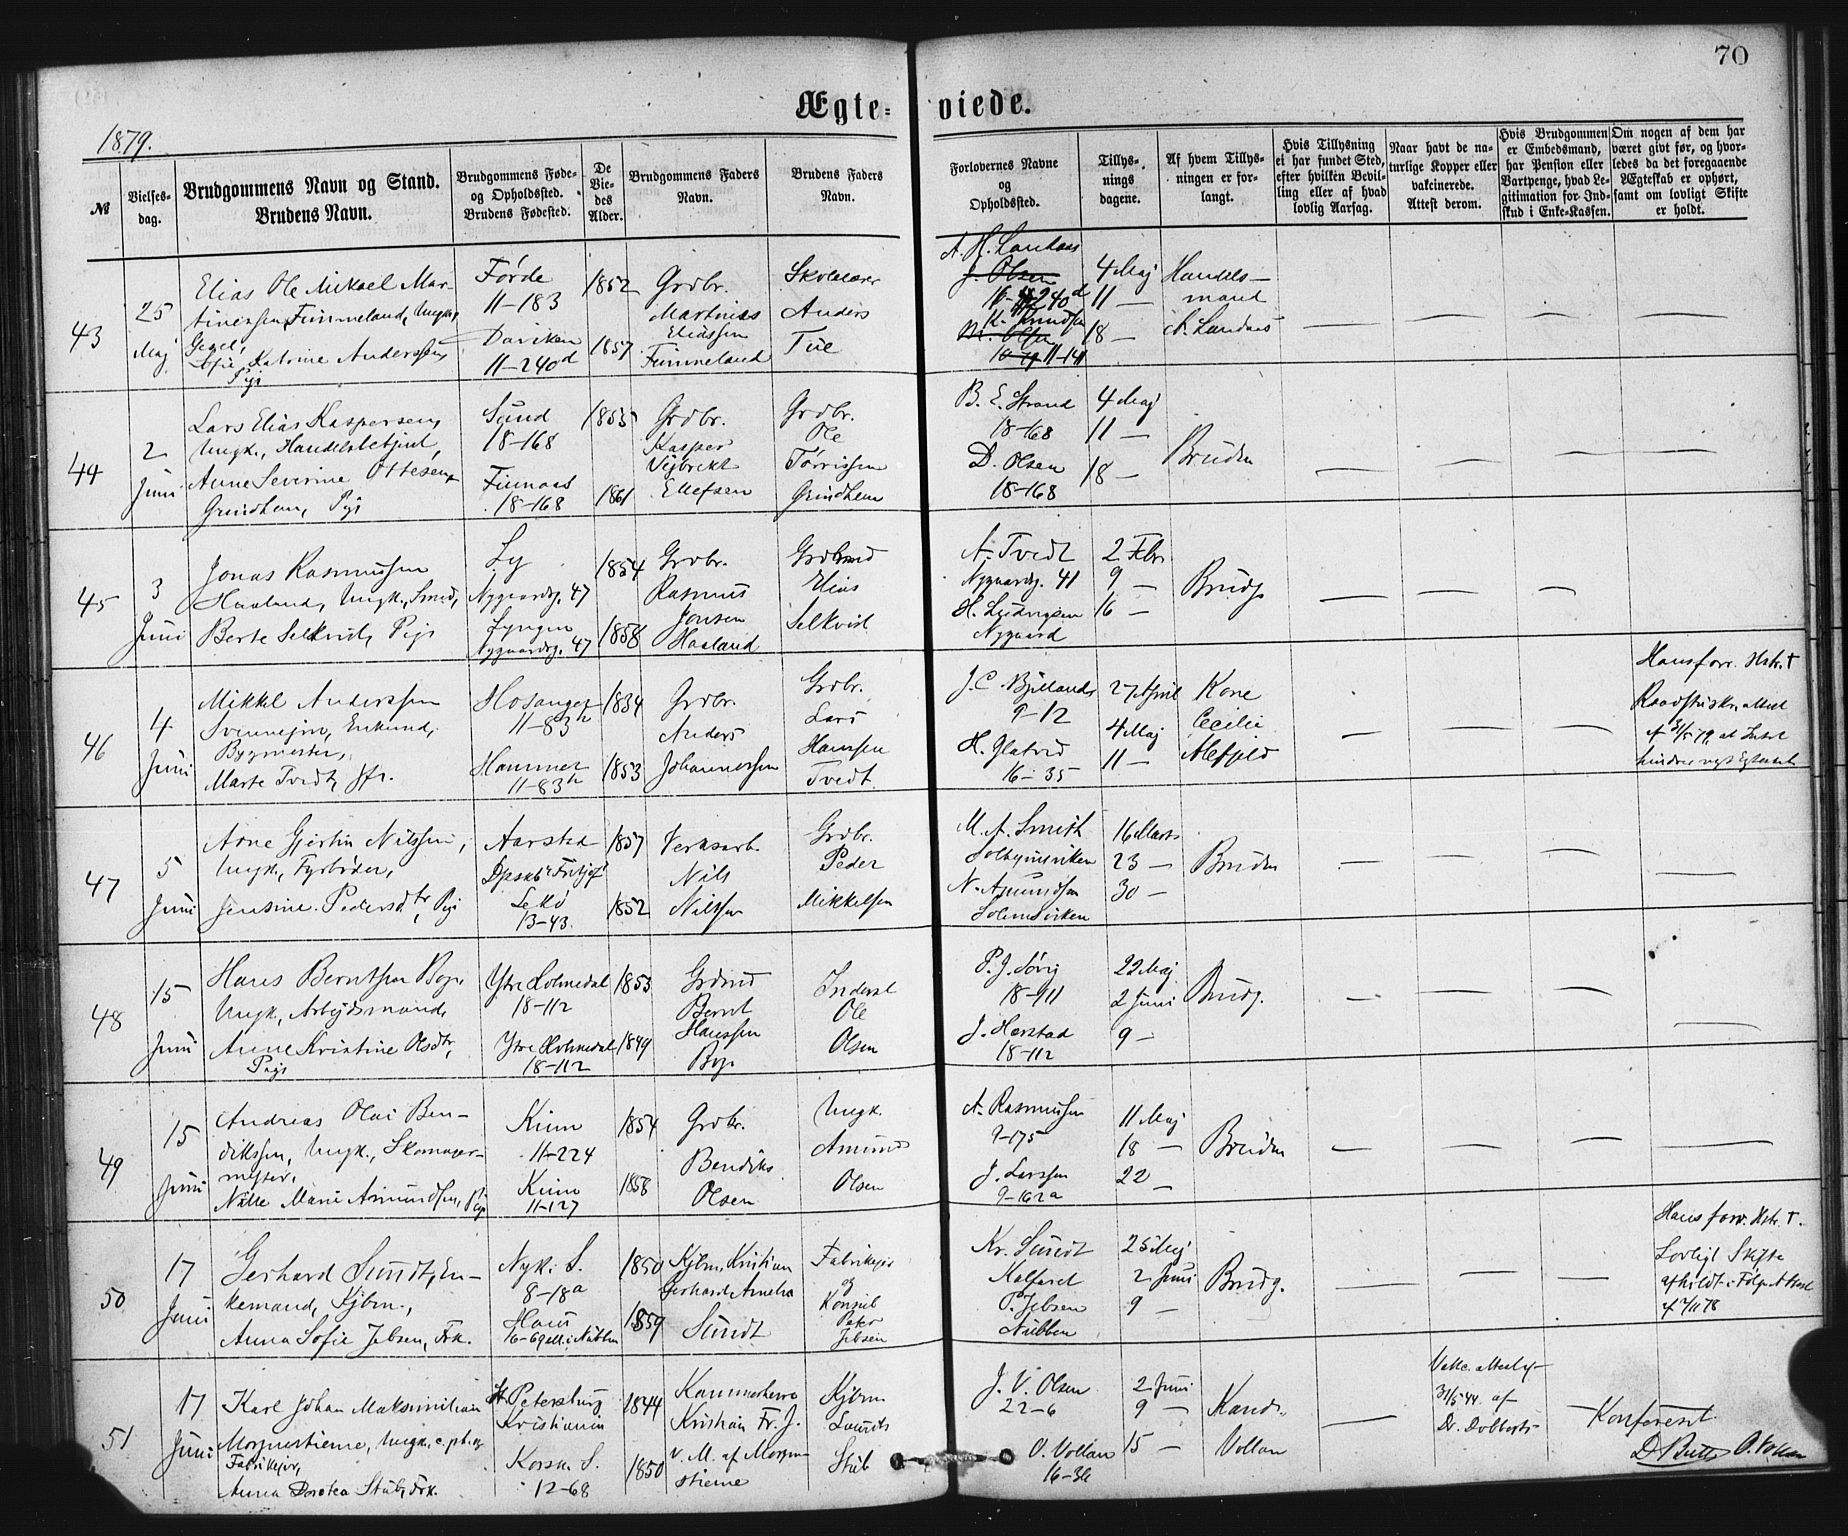 70
Ægte=
viede.
1879.
№
Vielses-
dag.
Brudgommens Navn og Stand.
Brudens Navn.
Brudgommens Føde-
og Opholdssted.
Brudens Fødested.
De
Vie-
des
Alder.
Brudgommens Faders
Navn.
Brudens Faders
Navn.
Forlovernes Navne
og
Opholdssted.
Tillys-
nings
dagene.
Af hvem Tillys-
ningen er for-
langt.
Hvis Tillysning
ei har fundet Sted,
efter hvilken Bevil-
ling eller af hvad
lovlig Aarsag.
Naar havt de na-
turlige Kopper eller
vakcinerede.
Attest derom.
Hvis Brudgommen
er Embedsmand,
har Pension eller
Vartpenge, hvad Le-
gitimation for Ind-
skud i Enke-Kassen.
Om nogen af dem har
været givt før, og hvor-
ledes da det foregaaende
Ægteskab er ophørt,
samt om lovligt Skifte
er holdt.
43
25
Maj
Elias Ole Mikael Mar-
tinessen Fimmeland, Ungk.,
Katrine Anderssen,
Pige
Førde
11-183
Daviken
11-240d
1852
1857
Grdbr.
Martinus
Eliassen
Fimmeland
Skolelærer
Anders
Tue
A. H. Landaas
J. Olsen
240d
K. Knudsen
M. Olsen
11-141
4 Maj
11 —
18 —
Handels-
mand
A. Landaas
44
2
Juni
Lars Elias Kaspersen,
Ungk., Handelsbetjent,
Anne Severine Ottesen
Grindhem, Pige
Sund
18-168
Finnaas
18-168
1855
1861
Grdbr.
Kasper
Ellefsen
Grdbr.
Ole
Tørrissen
Grindhem
B. E. Strand
18-168
D. Olsen
18-168
4 Maj
11 —
18 —
Bruden
45
3
Juni
Jonas Rasmussen
Haaland, Ungk., Smed,
Berte Selkvist, Pige
Ly
Nygaardsg. 47
Lyngen
Nygaardsg. 47
1854
1858
Grdbr.
Rasmus
Jonsen
Haaland
Elias
Selkvist
A. Tvedt
Nygaardsg. 41
H. Ludvigsen
Nygaard
2 Febr
9 —
16 —
Brudg.
46
4
Juni
Mikkel Anderssen
Enkemd.,
Bygmester,
Marte Tvedt, Jfr.
Hosanger
11-83h
Hammer
11-83h
1834
1853
Grdbr.
Anders
Johannessen
Grdbr.
Lars
Hanssen
Tvedt
J. C. Bjellands
9-12
H. Glatved
16-35
27 April
4 Maj
11 —
Kone
Cecilie
Alefjeld
Hans forr. Hstr. †
47
5
Juni
Arne Gjertin Nilssen,
Ungk., Fyrbøder,
Jensine Pedersdtr, Pige
Aarstad
Dpskib "Fritjof"
Lekø
13-43
1857
1852
Verksarb.
Nils
Nilssen
Grdbr.
Peder
Mikkelsen
M. A. Smith
Solheimsviken
N. Amundsen
Solheimsviken
16 Marts
23 —
30 —
Bruden
48
15
Juni
Hans Berntsen Bøe,
Ungk., Arbejdsmand,
Anne Kristine Olsdtr,
Pige
Ytre Holmedal
18-112
Ytre Holmedal
18-112
1853
1849
Grdmd
Bernt
Hanssen
Bøe
Inderst
Ole
Olsen
P. J. Søvig
18-111
J. Harstad
18-112
22 Maj
2 Juni
9 —
Brudg.
49
15
Juni
Andreas Olai Ben-
dikssen, Ungk., Skomager-
mester,
Nille Marie Amundsen, Pige
Kinn
11-224
Kinn
11-127
1854
1858
Grdbr.
Bendiks
Olsen
Ungk.
Amund
Olsen
A. Rasmussen
9-175
J. Larssen
9-162a
11 Maj
18 —
22 —
Bruden
50
17
Juni
Gerhard Sundt, En-
kemand, Kjbm.,
Anna Sofie Jebsen, Frk.
Nyk. S.
8-18a
Haus
1850
1859
Kjbm. Kristian
Gerhard Ameln
Sundt
Fabrikejer
og
Konsul
Peter
Jebsen
Kr. Sundt
Kalfaret
P. Jebsen
Nubben
25 Maj
2 Juni
9 —
Brudg.
Hans forr. Hstr. †.
Lovligt Skifte
afholdt i Følge Attest
51
17
Juni
Karl Johan Maksimilian
Morgenstierne, Ungk., c. ph. og
Fabrikejer,
Anna Dorotea Stub, Frk.
St Petersburg
Kristiania
Korsk. S.
12-68
1844
1850
Kammerherre
Kristian Fr. J.
v. M. af Morgen-
stierne
Kjbm
Laurits
Stub
J. V. Olsen
22-6
O. Vollan
16-36
2 Juni
9 —
15 —
Kand.
Vollan
Vakc. attest af
31/5 44 af
Dr. Dobberts
Konfereret
O. Vollan